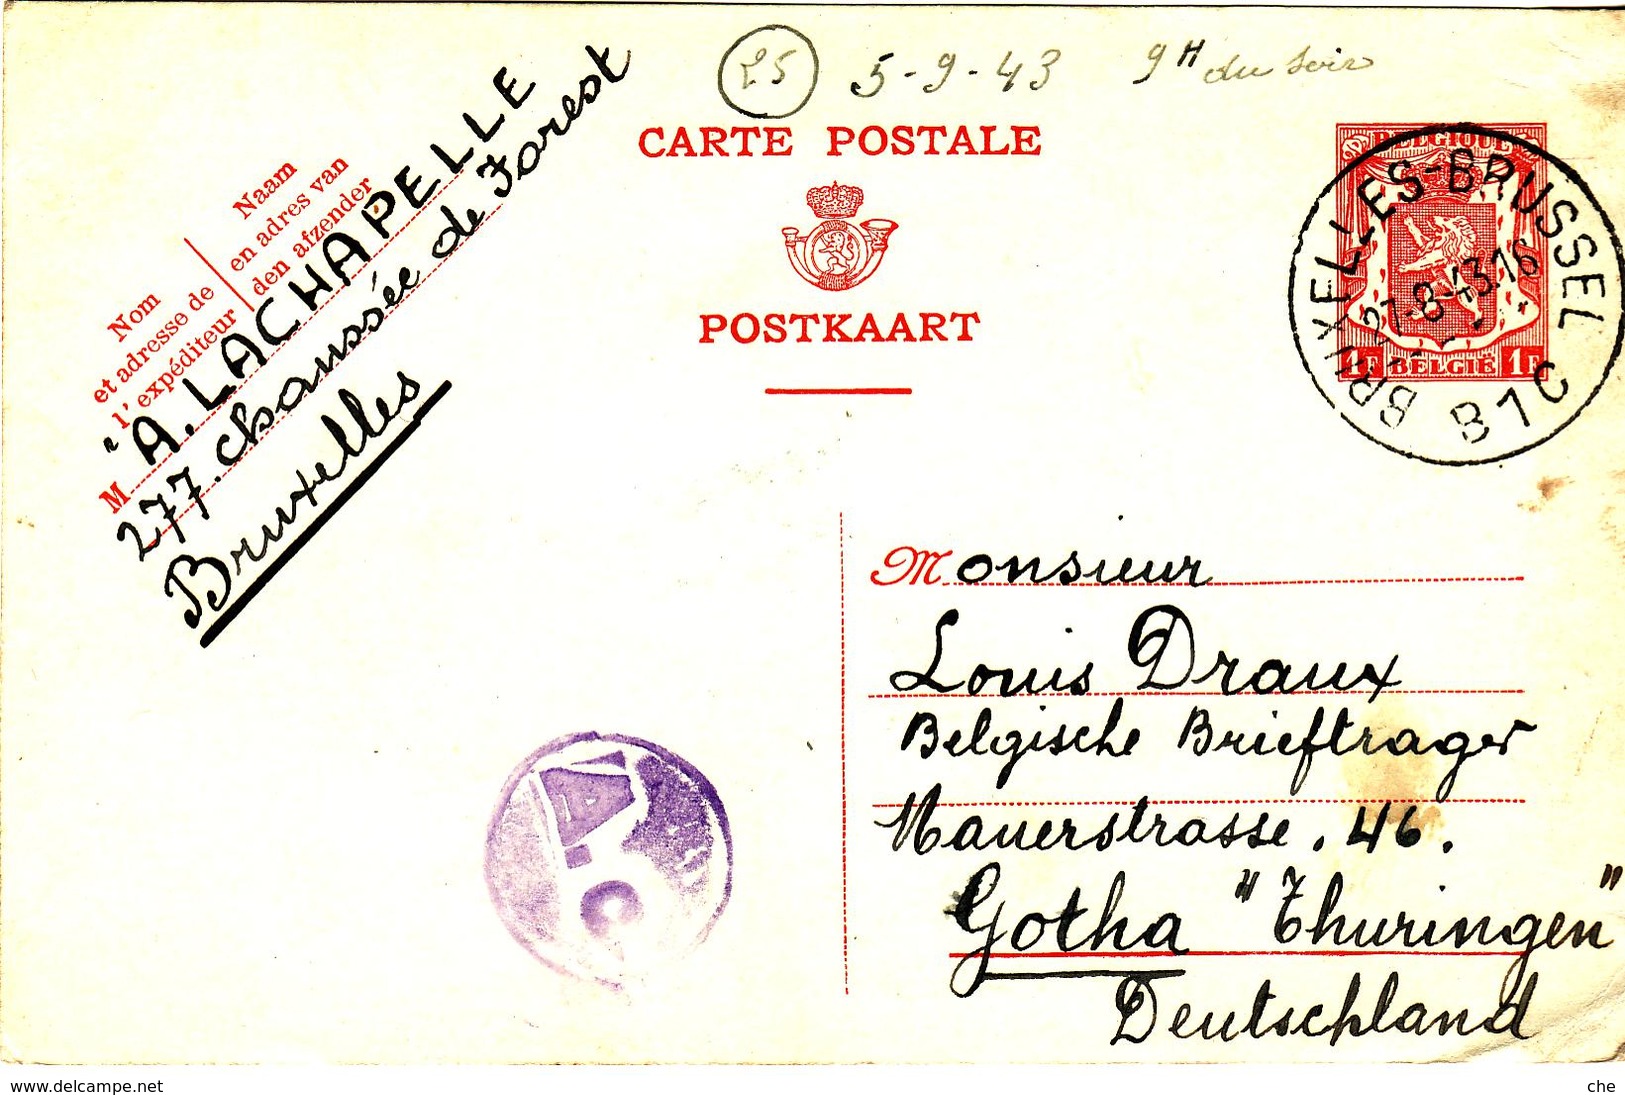 25 5-9-43 9H du soir
CARTE POSTALE
POSTKAART
Nom
et adresse de
l'expéditeur
Naam
en adres van
den afzender
M "A. LACHAPELLE
277. chaussée de Forest
Bruxelles
BELGIQUE
1F BELGIË 1F
BRUXELLES-BRUSSEL
27-8-43.16
B1C
Monsieur
Louis Draux
Belgische Brieftrager
Mauerstrasse. 46.
Gotha "Thuringen"
Deutschland
www.delcampe.net
che